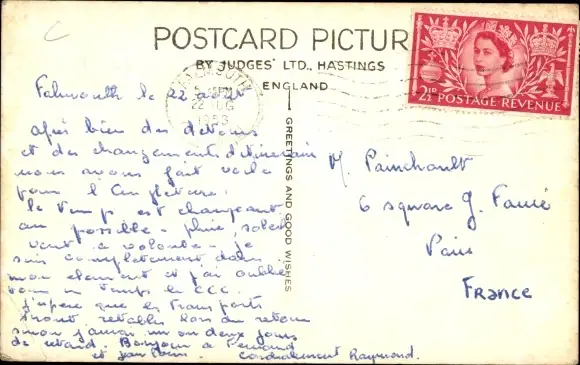 c
POSTCARD PICTUR
BY JUDGES' LTD., HASTINGS
ENGLAND
GREETINGS AND GOOD WISHES
FALMOUTH
22 AUG
1953
2½D POSTAGE·REVENUE
Falmouth le 22 août
Après bien des détours
et des changements d'itinéraire
nous avons fait voile
pour l'Angleterre.
le temps est changeant
au possible - pluie, soleil
vent a volonté - je
suis completement dans
mon élement et j'ai oublié
pour un temps le CCC.
J'espère que les transports
seront rétablis lors du retour
sinon j'aurai un ou deux jours
de retard. Bonjour a Fernand
et
Cordialement Raymond.
M. Painchault
6 square G. Fauré
Paris
France